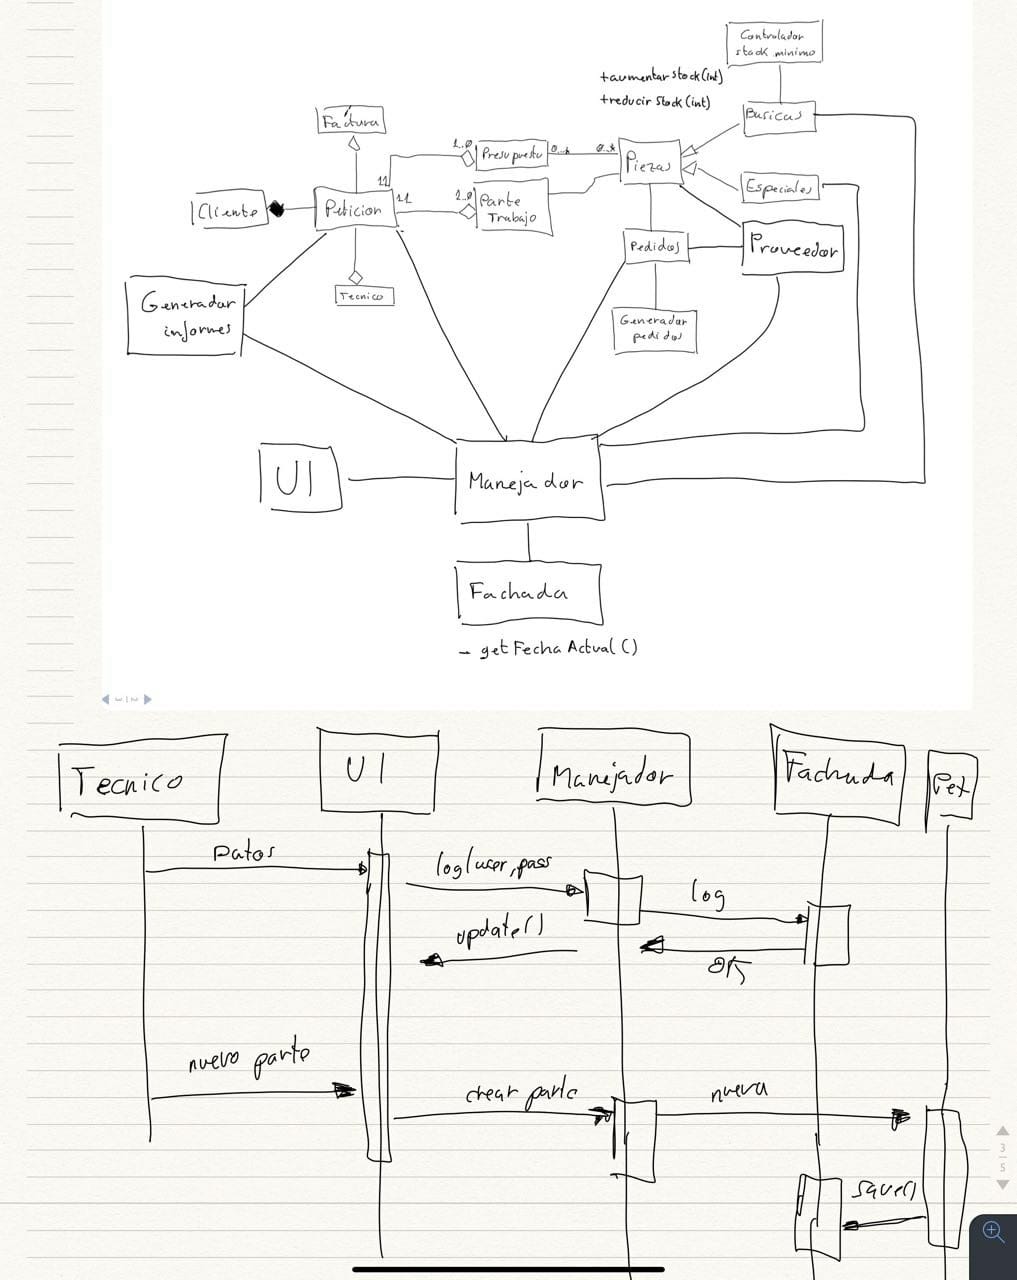 Controlador
stock minimo
+aumentar stock(int)
+reducir stock(int)
Basicas
Factura
1..0
Presupuesto
0..*
0..*
Piezas
Especiales
11
Cliente
Peticion
11
1..0
Parte
Trabajo
Pedidos
Proveedor
Tecnico
Generador
informes
Generador
pedidos
UI
Manejador
Fachada
- get Fecha Actual ()
Tecnico
UI
Manejador
Fachada
Pet
Datos
log(user, pass
log
update()
OK
nuevo parte
crear parte
nueva
save()
3
5